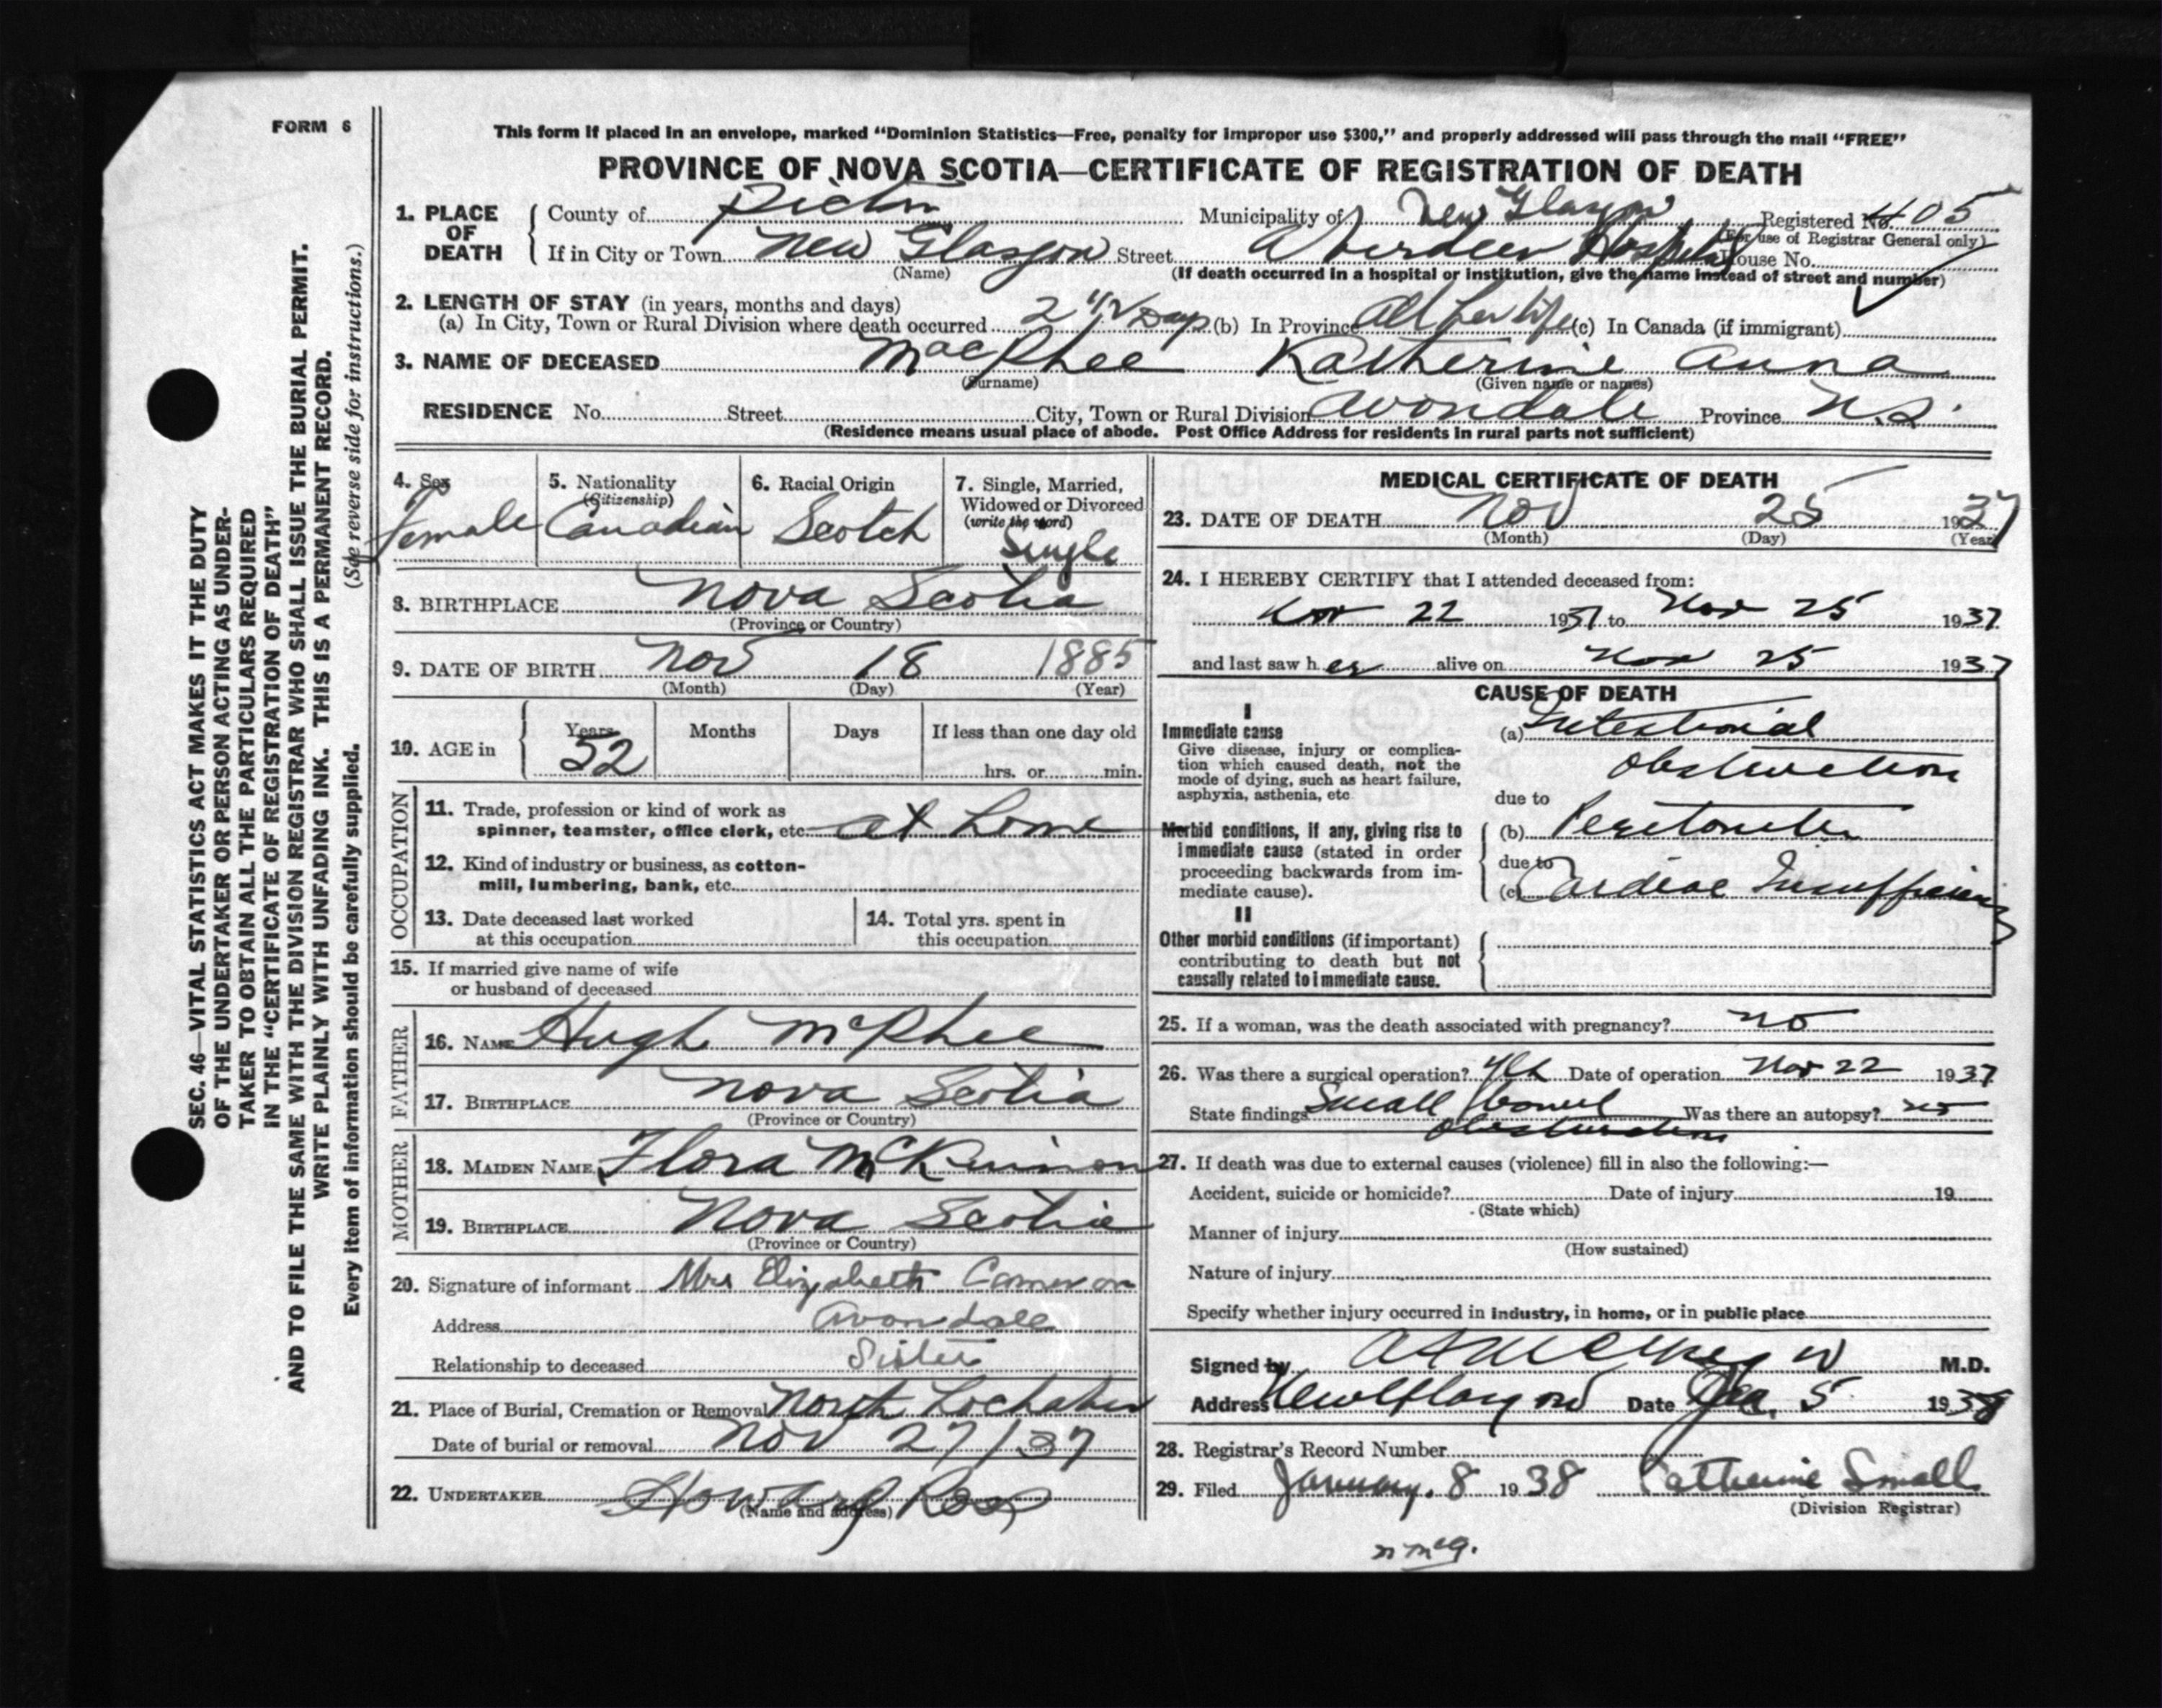 FORM 6
This form if placed in an envelope, marked “Dominion Statistics—Free, penalty for improper use $300,” and properly addressed will pass through the mail “FREE”
PROVINCE OF NOVA SCOTIA—CERTIFICATE OF REGISTRATION OF DEATH
1. PLACE OF DEATH { County of Pictou Municipality of New Glasgow Registered No. 405
(For use of Registrar General only)
If in City or Town New Glasgow Street Aberdeen Hospital House No.
(Name) (If death occurred in a hospital or institution, give the name instead of street and number)
2. LENGTH OF STAY (in years, months and days)
(a) In City, Town or Rural Division where death occurred 2 1/2 Days (b) In Province All her life (c) In Canada (if immigrant)
3. NAME OF DECEASED MacPhee Katherine Anna
(Surname) (Given name or names)
RESIDENCE No. Street City, Town or Rural Division Avondale Province N.S.
(Residence means usual place of abode. Post Office Address for residents in rural parts not sufficient)
4. Sex Female
5. Nationality (Citizenship) Canadian
6. Racial Origin Scotch
7. Single, Married, Widowed or Divorced (write the word) Single
8. BIRTHPLACE Nova Scotia
(Province or Country)
9. DATE OF BIRTH Nov 18 1885
(Month) (Day) (Year)
10. AGE in { Years 52 Months Days If less than one day old
hrs. or min.
OCCUPATION
11. Trade, profession or kind of work as
spinner, teamster, office clerk, etc. at Home
12. Kind of industry or business, as cotton-
mill, lumbering, bank, etc.
13. Date deceased last worked
at this occupation
14. Total yrs. spent in
this occupation
15. If married give name of wife
or husband of deceased
FATHER
16. NAME Hugh McPhee
17. BIRTHPLACE Nova Scotia
(Province or Country)
MOTHER
18. MAIDEN NAME Flora McKinnon
19. BIRTHPLACE Nova Scotia
(Province or Country)
20. Signature of informant Mrs Elizabeth Cameron
Address Avondale
Relationship to deceased Sister
21. Place of Burial, Cremation or Removal North Lochaber
Date of burial or removal Nov 27/37
22. UNDERTAKER Howard Ross
(Name and address)
MEDICAL CERTIFICATE OF DEATH
23. DATE OF DEATH Nov 25 1937
(Month) (Day) (Year)
24. I HEREBY CERTIFY that I attended deceased from:
Nov 22 1937 to Nov 25 1937
and last saw her alive on Nov 25 1937
CAUSE OF DEATH
I
Immediate cause
Give disease, injury or complica-
tion which caused death, not the
mode of dying, such as heart failure,
asphyxia, asthenia, etc
(a) Intestinal
Obstruction
due to
Morbid conditions, if any, giving rise to
immediate cause (stated in order
proceeding backwards from im-
mediate cause).
(b) Peritonitis
due to
(c) Cardiac Insufficiency
II
Other morbid conditions (if important)
contributing to death but not
causally related to immediate cause.
25. If a woman, was the death associated with pregnancy? no
26. Was there a surgical operation? yes Date of operation Nov 22 1937
State findings Small bowel Was there an autopsy? no
obstruction
27. If death was due to external causes (violence) fill in also the following:—
Accident, suicide or homicide? Date of injury 19
(State which)
Manner of injury
(How sustained)
Nature of injury
Specify whether injury occurred in industry, in home, or in public place
Signed by M.D.
Address New Glasgow Date Jan. 5 1938
28. Registrar's Record Number
29. Filed January. 8 1938 Catherine Small
(Division Registrar)
SEC. 46—VITAL STATISTICS ACT MAKES IT THE DUTY
OF THE UNDERTAKER OR PERSON ACTING AS UNDER-
TAKER TO OBTAIN ALL THE PARTICULARS REQUIRED
IN THE “CERTIFICATE OF REGISTRATION OF DEATH”
AND TO FILE THE SAME WITH THE DIVISION REGISTRAR WHO SHALL ISSUE THE BURIAL PERMIT.
WRITE PLAINLY WITH UNFADING INK. THIS IS A PERMANENT RECORD.
Every item of information should be carefully supplied. (See reverse side for instructions.)